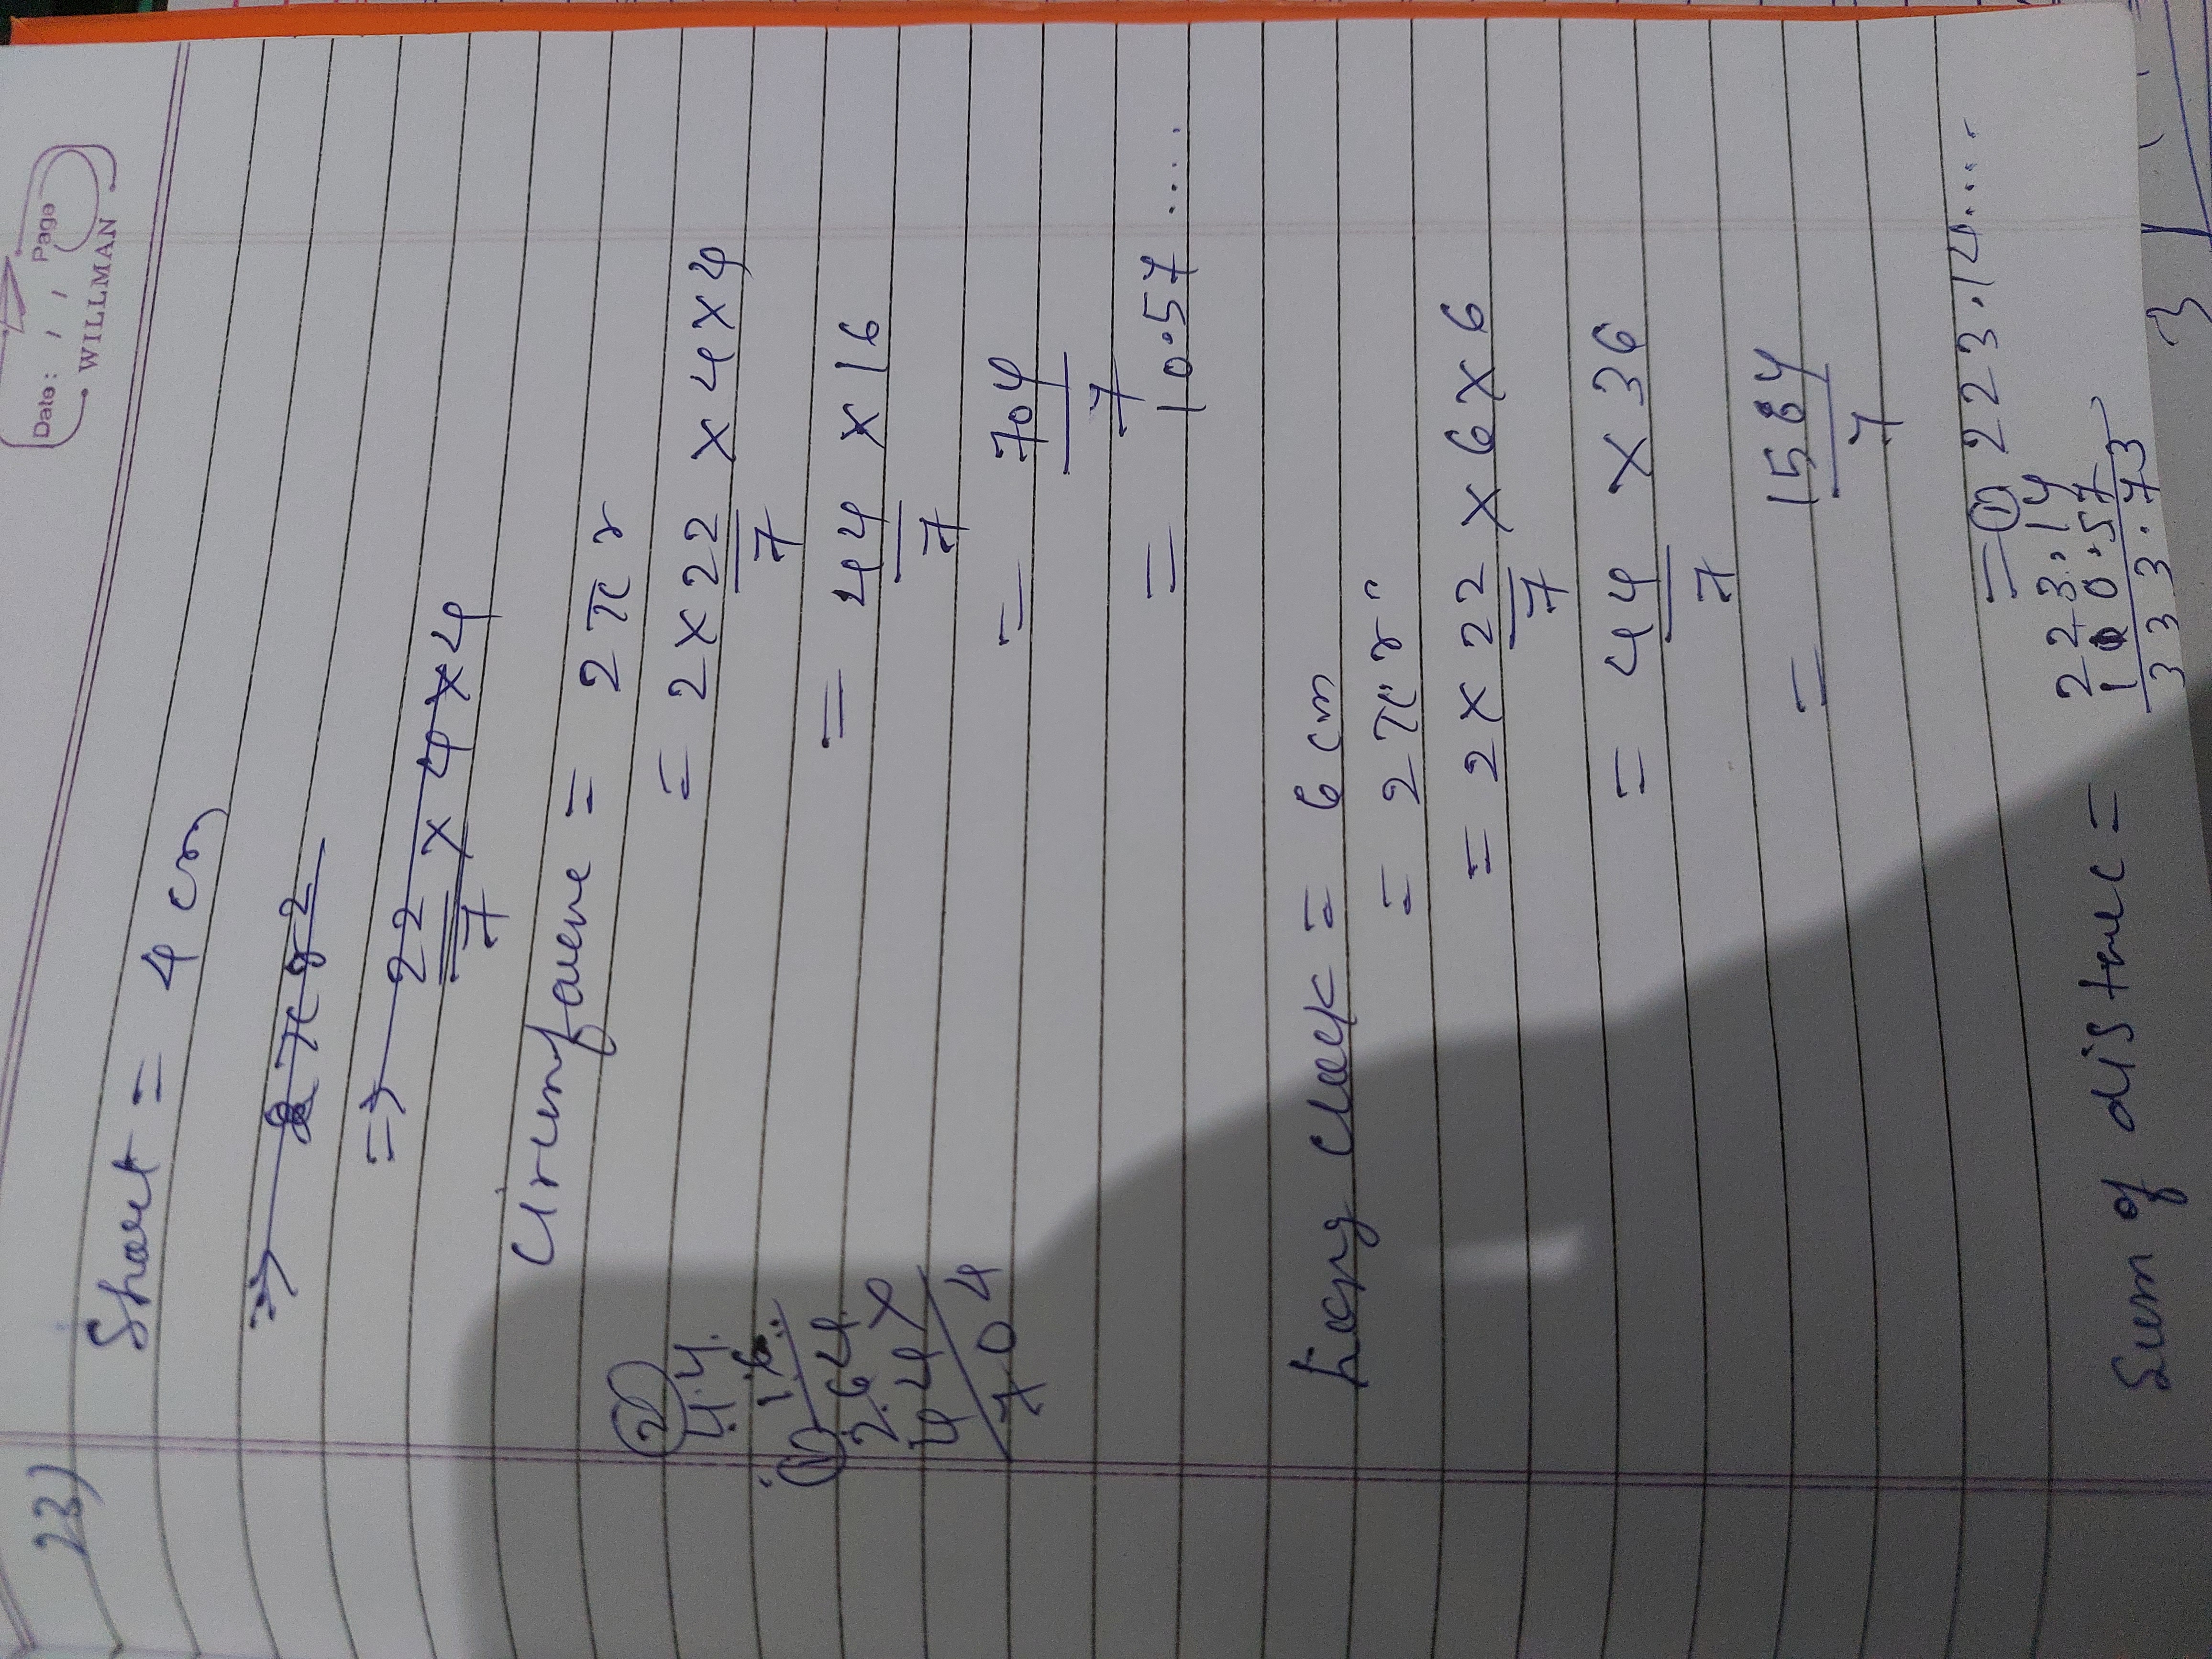 Date: / / Page
WILLMAN
23) Short = 4 cm
⇒ 2πr2
⇒ 22 × 4 × 4
7
= 2πr
= 2 × 22 × 4 × 4
7
= 44 × 16
7
= 704
7
= 10.57 ....
2
44
16
1
264
44×
704
Long Clock = 6 cm
= 2πr
= 2 × 22 × 6 × 6
7
= 44 × 36
7
= 1584
7
= 223.14....
Sum of distance =
1
223.14
100.57
333.73